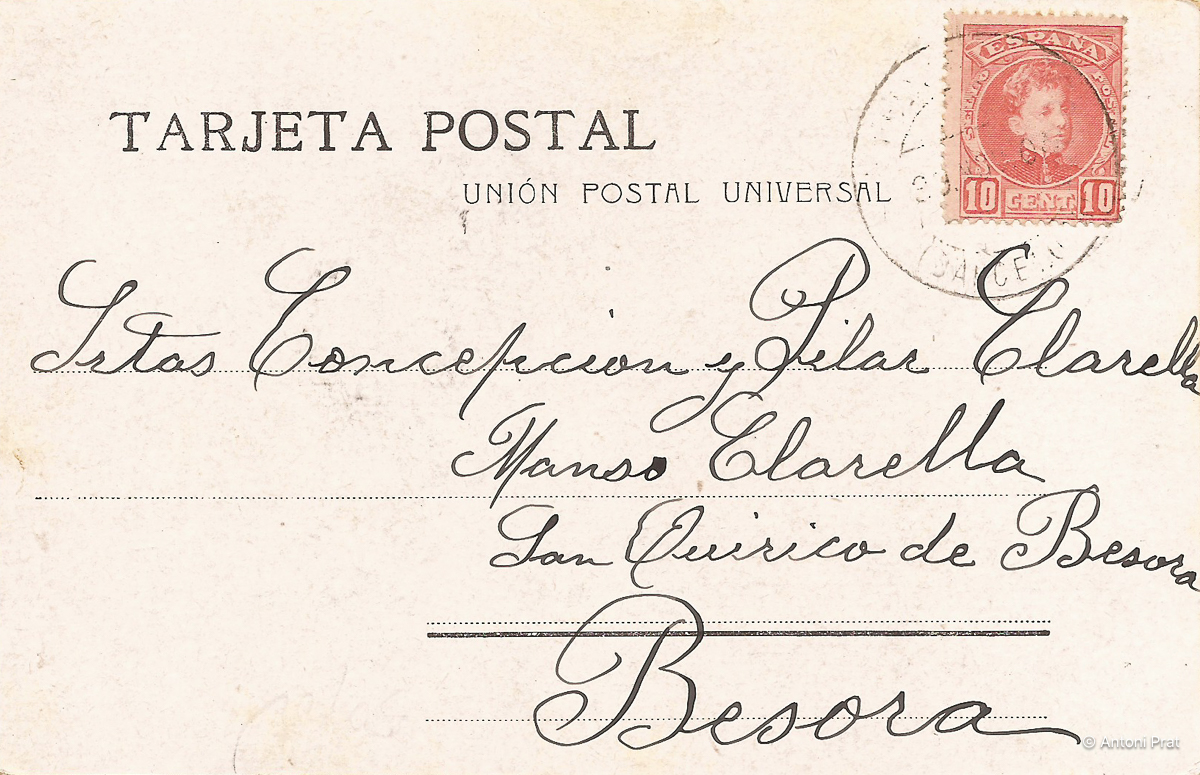 TARJETA POSTAL
UNIÓN POSTAL UNIVERSAL
ESPAÑA
10 CENT. 10
Srtas Concepcion y Pilar Clarella
Manso Clarella
San Quirico de Besora
Besora
© Antoni Prat